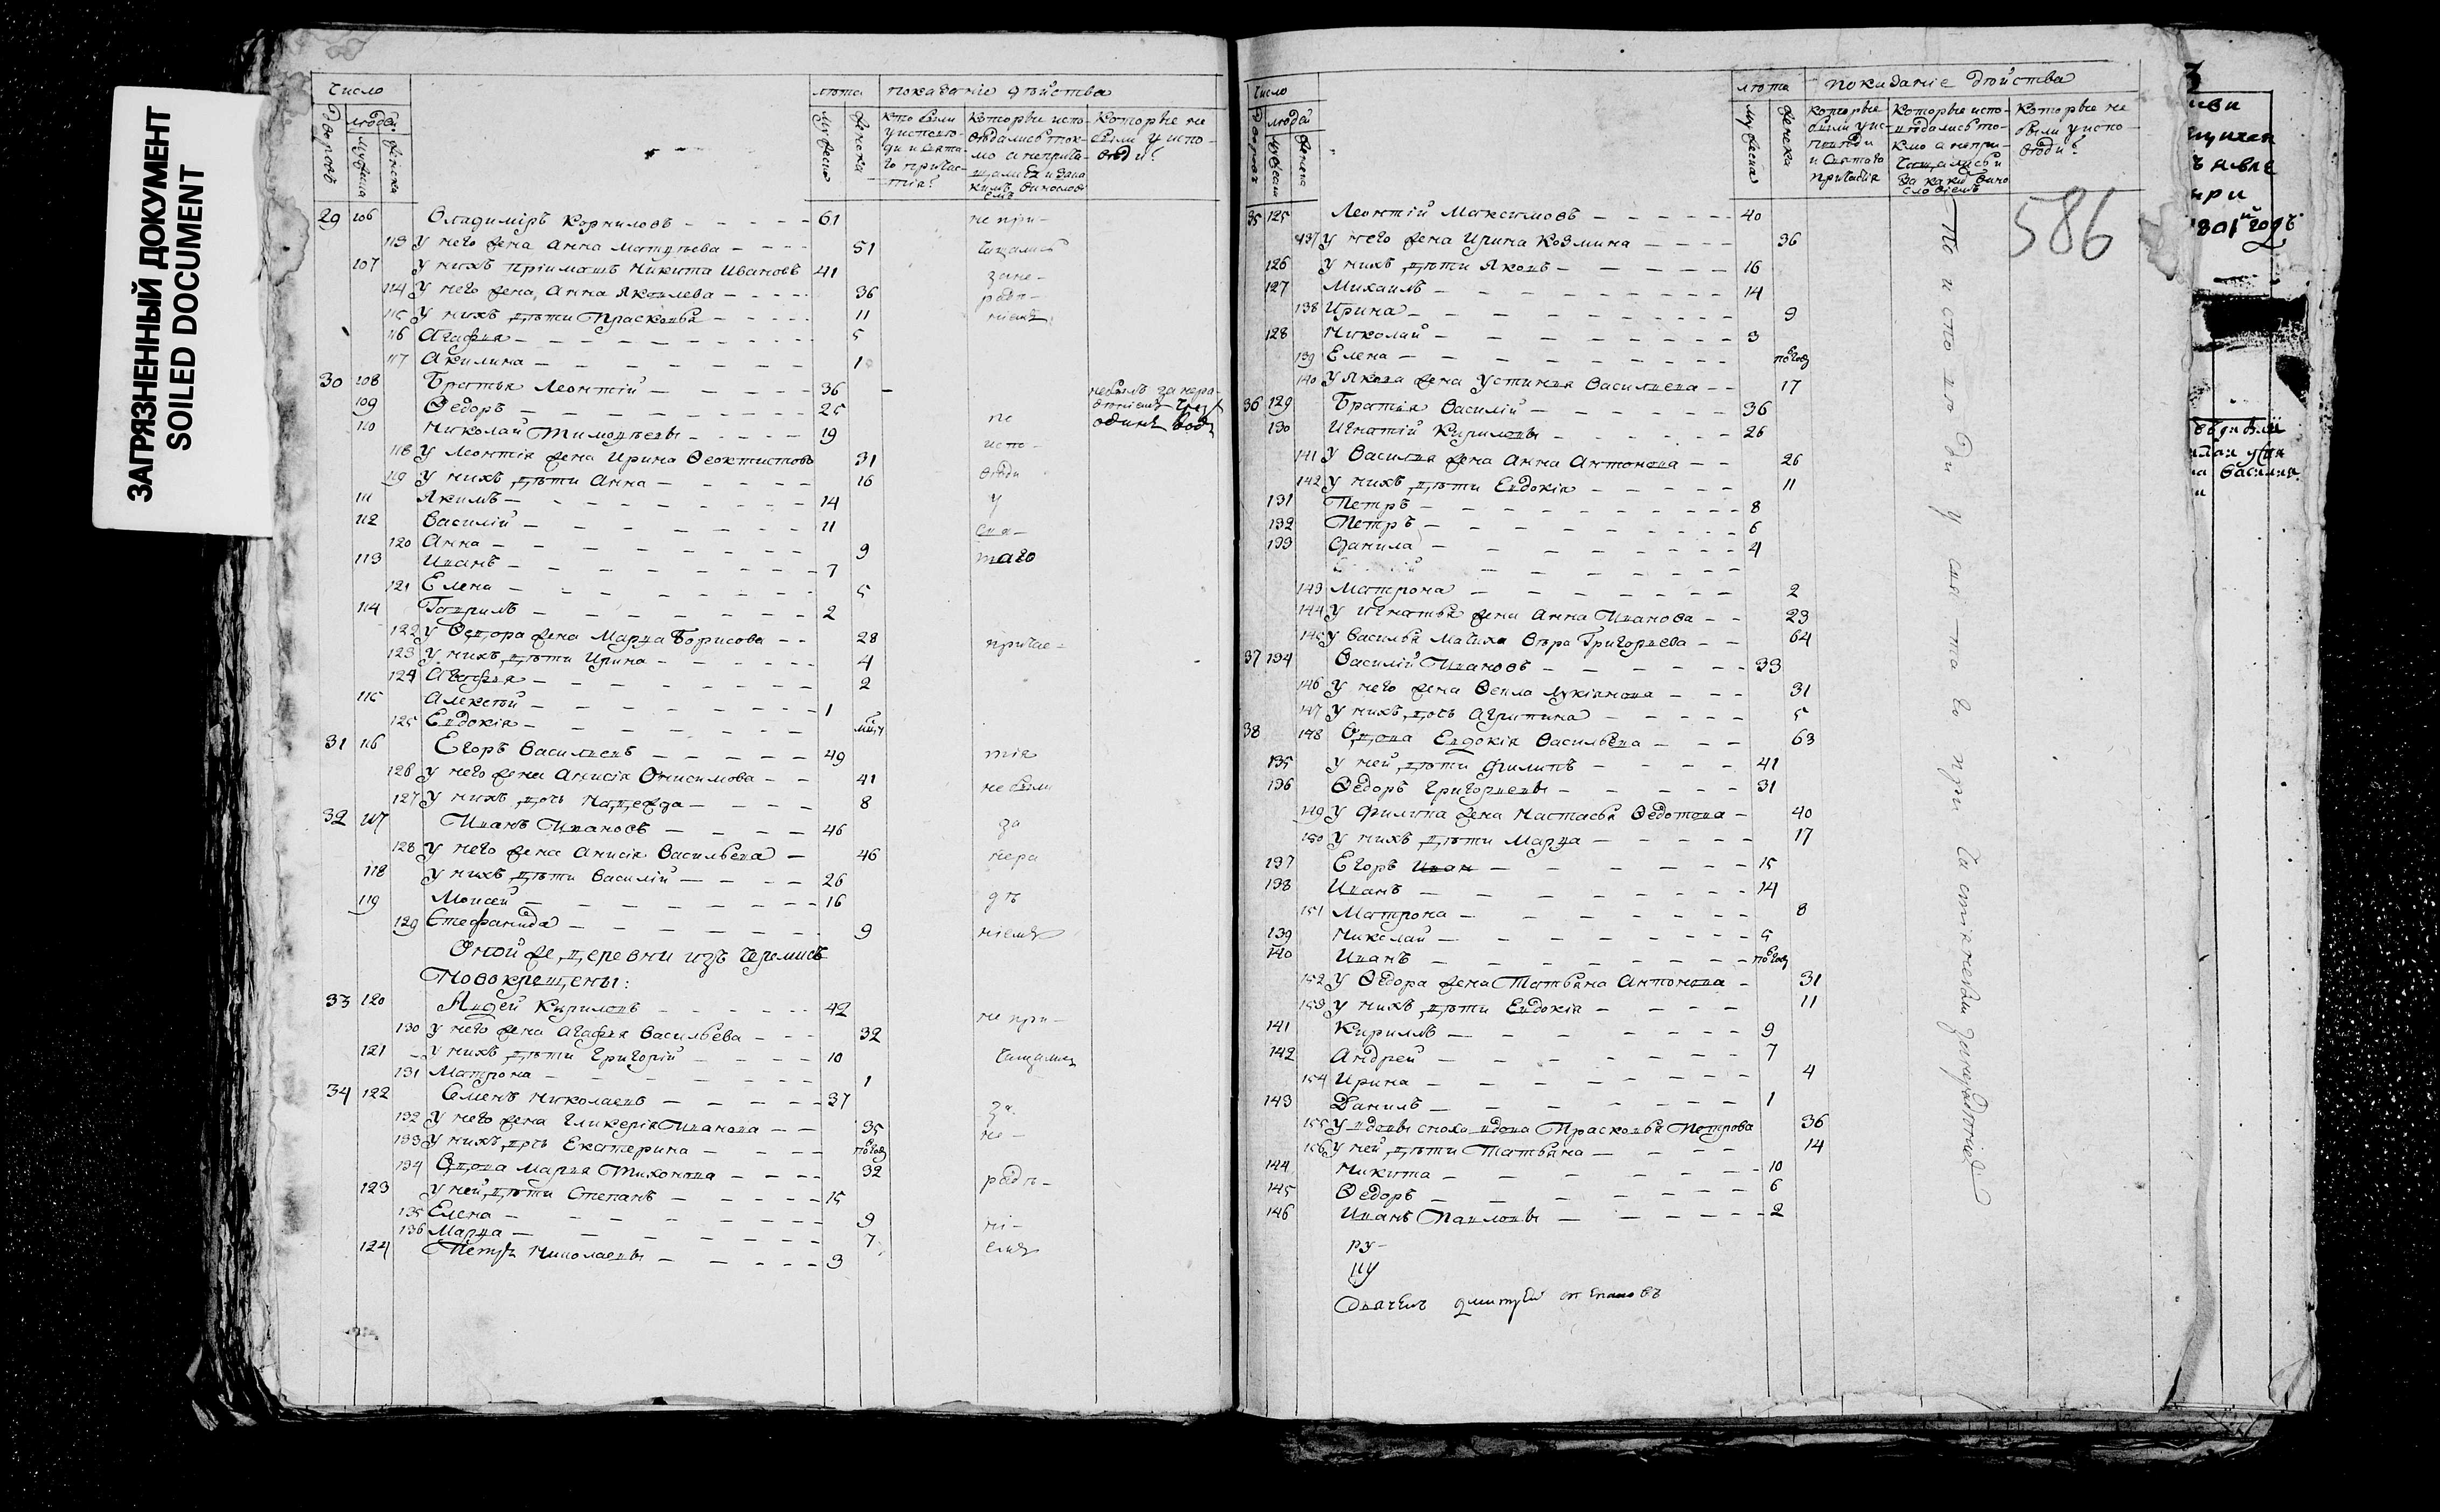 ЗАГРЯЗНЕННЫЙ ДОКУМЕНТ
SOILED DOCUMENT
Число
лѣта
показаніе дѣйства
Дворовъ
людей
мужеска
женска
мужеска
женска
кто были
у исповѣ-
ди и свята-
го причас-
тія?
которые испо-
вѣдались ток-
мо а неприча-
щались и за ка-
кимъ винослові
емъ
которые не
были у испо-
вѣди?
29 106 Владиміръ Корниловъ 61
113 У него жена Анна Матвѣева 51
107 У нихъ пріимашъ Никита Ивановъ 41
114 У него жена Анна Яковлева 36
115 У нихъ дѣти Прасковья 11
116 Агафья 5
117 Акилина 1
не при-
чащали
за не-
радѣ-
ніемъ
30 108 Братья Леонтій 36
109 Ѳедоръ 25
110 Николай Тимоѳеевы 19
118 У Леонтія жена Ирина Ѳеоктистова 31
119 У нихъ дѣти Анна 16
111 Якимъ 14
112 Василій 11
120 Анна 9
113 Иванъ 7
121 Елена 5
114 Гаврилъ 2
122 У Ѳедора жена Марѳа Борисова 28
123 У нихъ дѣти Ирина 4
124 Агафья 2
115 Алексѣй 1
125 Евдокія
небылъ за нера-
одинъ годъ
не
испо-
вѣди
у
свя-
таго
причас-
тія
не были
за
нера
дѣ
ніемъ
31 116 Егоръ Васильевъ 49
126 У него жена Анисія Онисимова 41
127 У нихъ дочь Надежда 8
32 117 Иванъ Ивановъ 46
128 У него жена Анисія Васильева 46
118 У нихъ дѣти Василій 26
119 Моисей 16
129 Стефанида 9
Оной же деревни изъ черемисъ
Новокрещены:
33 120 Андей Кириловъ 42
130 У него жена Агафья Васильева 32
121 У нихъ дѣти Григорій 10
131 Матрона 1
34 122 Семенъ Николаевъ 37
132 У него жена Гликерія Иванова 35
133 У нихъ дочь Екатерина полгод
134 Вдова Марья Тихонова 32
123 У ней дѣти Степанъ 15
135 Елена 9
136 Марѳа 7
124 Петръ Николаевы 3
не при-
чащались
за
не-
радѣ-
ні-
емъ
Число
лѣта
показаніе дѣйства
Дворовъ
людей
мужеска
женска
мужеска
женска
которые
были у ис-
повѣди
и святого
причастія
которые испо-
вѣдались то-
кмо а непри-
чащались и
за каким вино
словіемъ
которые не
были у испо
вѣди?
586
35 125 Леонтій Максимовъ 40
137 У него жена Ирина Козмина 36
126 У нихъ дѣти Яковъ 16
127 Михаилъ 14
138 Ирина 9
128 Николай 3
139 Елена полгод
140 У Якова жена Устинья Васильева 17
36 129 Братья Василій 36
130 Игнатій Кириловы 26
141 У Василья жена Анна Антонова 26
142 У нихъ дѣти Евдокія 11
131 Петръ 8
132 Петръ 6
133 Данила 4
143 Матрона 2
144 У Игнатья жена Анна Иванова 23
145 У Василья мачиха Вѣра Григорьева 64
37 134 Василій Ивановъ 33
146 У него жена Ѳекла Лукіанова 31
147 У нихъ дочь Агрипина 5
38 148 Вдова Евдокія Васильева 63
135 У ней дѣти Филипъ 41
136 Ѳедоръ Григорьевы 31
149 У Филипа жена Настасья Ѳедотова 40
150 У нихъ дѣти Марѳа 17
137 Егоръ Иван 15
138 Иванъ 14
151 Матрона 8
139 Николай 5
140 Иванъ полгод
152 У Ѳедора жена Татьяна Антонова 31
153 У нихъ дѣти Евдокія 11
141 Кирилъ 9
142 Андрей 7
154 Ирина 4
143 Данилъ 1
155 У вдовы сноха вдова Прасковья Петрова 36
156 У ней дѣти Татьяна 14
144 Никита 10
145 Ѳедоръ 6
146 Иванъ Павловы 2
ру-
цу
Дьячекъ Дмитрей Степановъ
1801 годъ